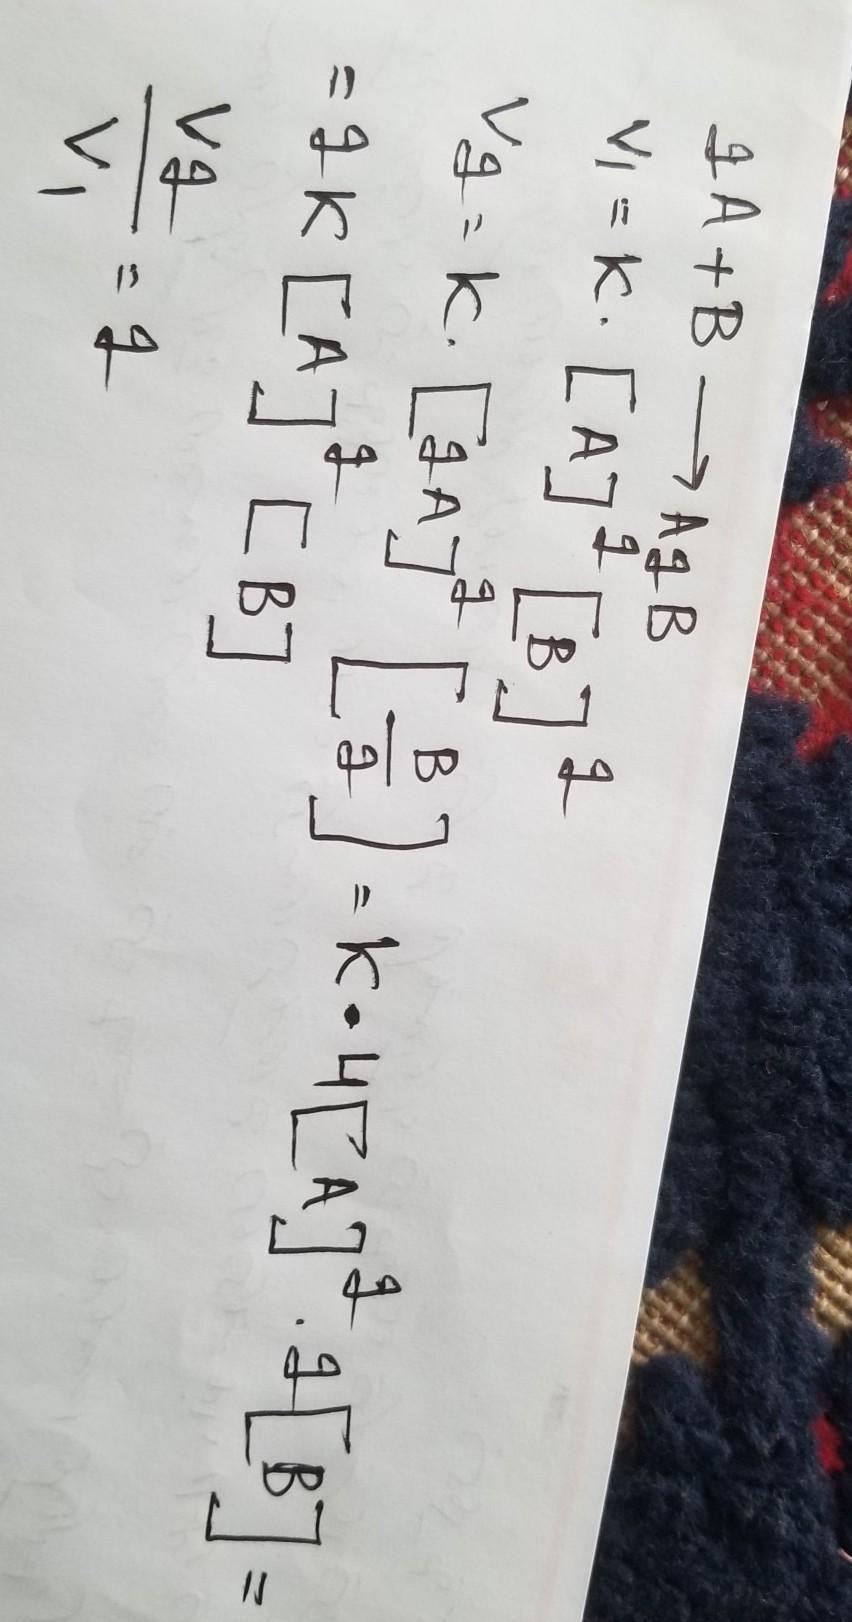 2A + B → A2B
V1 = K. [A]² [B]²
V2 = K. [2A]² [B/2] = K • 4[A]² . 2[B] =
= 2K [A]² [B]
V2/V1 = 2